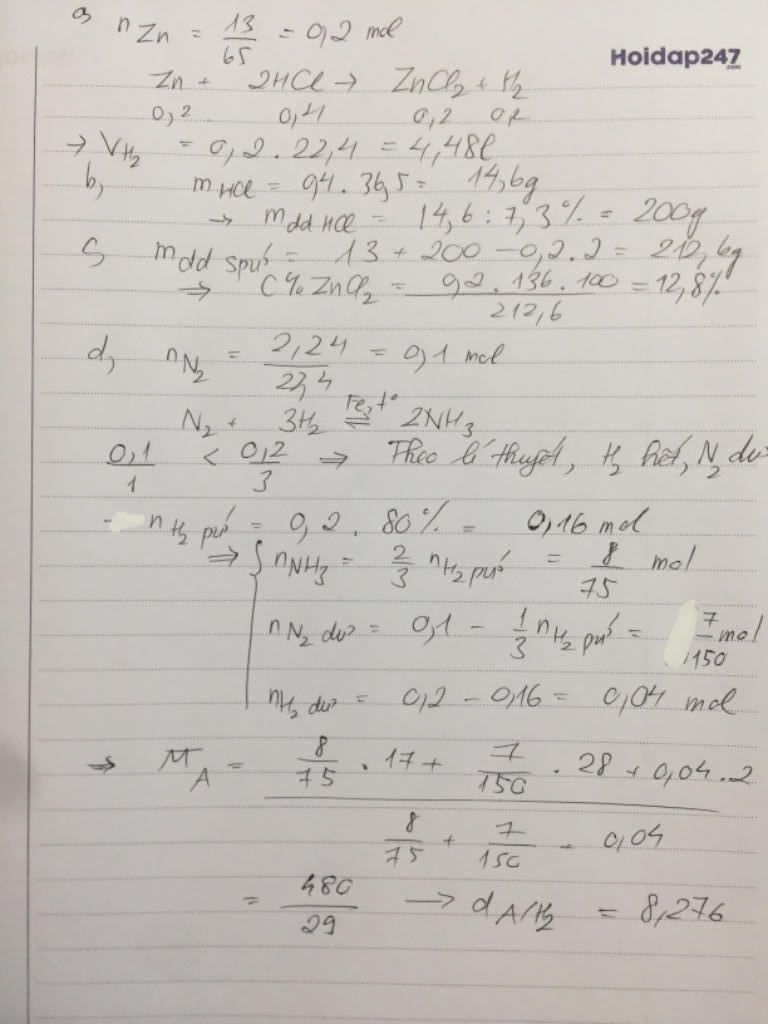 a, nZn = 13/65 = 0,2 mol
Hoidap247.com
Zn + 2HCl → ZnCl2 + H2
0,2 0,4 0,2 0,2
→ VH2 = 0,2 . 22,4 = 4,48l
b, mHCl = 0,4 . 36,5 = 14,6g
→ mdd HCl = 14,6 : 7,3% = 200g
c, mdd spứ = 13 + 200 - 0,2 . 2 = 212,6g
⇒ C% ZnCl2 = 0,2 . 136 . 100 / 212,6 = 12,8%
d, nN2 = 2,24/22,4 = 0,1 mol
N2 + 3H2 ⇌ 2NH3
0,1/1 < 0,2/3 ⇒ Theo lí thuyết, H2 hết, N2 dư
nH2 pứ = 0,2 . 80% = 0,16 mol
⇒ { nNH3 = 2/3 nH2 pứ = 8/75 mol
nN2 dư = 0,1 - 1/3 nH2 pứ = 7/150 mol
nH2 dư = 0,2 - 0,16 = 0,04 mol
⇒ MA = 8/75 . 17 + 7/150 . 28 + 0,04 . 2
8/75 + 7/150 - 0,04
= 480/29 → dA/H2 = 8,276